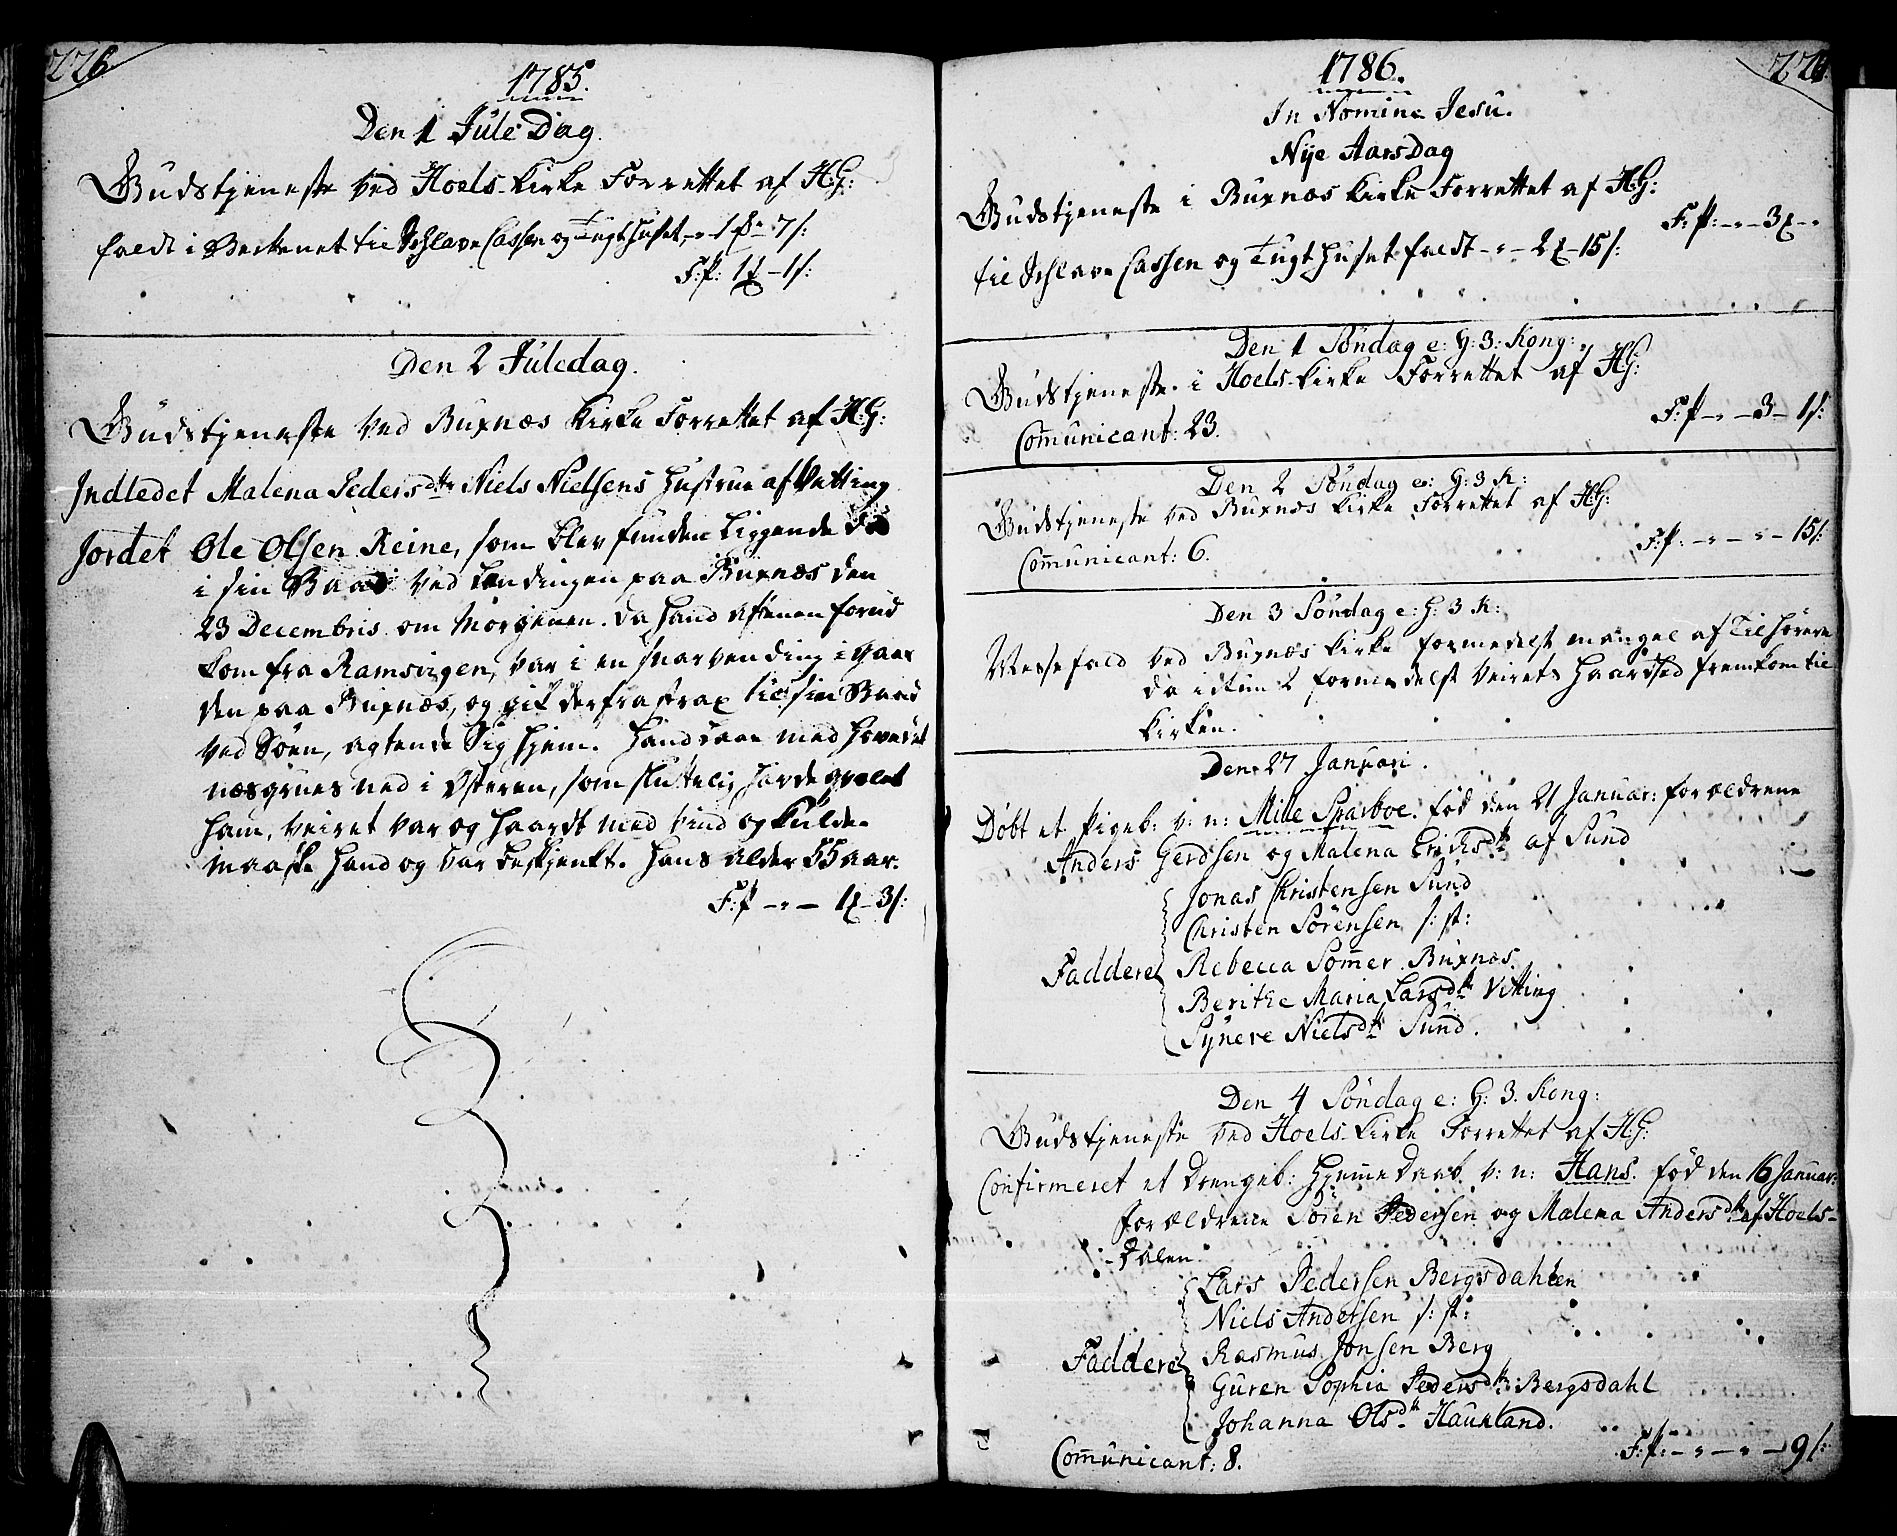 226
1785.
Den 1 Jule Dag.
Gudstjeneste ved Hoels-Kirke Forrettet af H.G:
faldt i Beckenet til Schlave Cassen og Tugthuset,
F:P: 1 - 1 s:
Den 2 Juledag.
Gudstjeneste ved Buxnæs Kirke Forrettet af H:G:
Indledet Malena Pedersdtr Niels Nielsens Hustrue af Vetting
Jordet Ole Olsen Reine, som blev funden liggende død
i sin Baad ved Lendingen paa Buxnæs den
23 Decembris om Morgenen. da hand aftenen forud
kom fra Ramsvigen, var i en snarvending i gaar
den paa Buxnæs, og gik derfra strax til sin Baad
ved Söen, agtende Sig hjem. Hand laae med Hovedet
næsgrues ned i Østeren, som sluttelig havde qvalt
ham, veiret var og haardt med Vind og Kulde.
maaske hand og var beskjenkt. Hans alder 55 aar.
F:P - " - 1 - 3 s:
1786.
In Nomine Jesu.
Nije Aarsdag
Gudstjeneste i Buxnæs Kirke Forrettet af H:G:
F:P: - " - 3 - "
til Schlave Cassen og Tugthuset faldt - " - 2 - 15 s:
Den 1 Söndag e: H: 3: Kong:
Gudstjeneste i Hoels-Kirke Forrettet af H:G:
F:P - " - 3 - 1 s:
Comunicant: 23.
Den 2 Söndag e: H: 3 K:
Gudstjeneste ved Buxnæs Kirke Forrettet af H:G:
F:P: - " - " - 15 s:
Comunicant: 6.
Den 3 Söndag e: H: 3 K:
Messefald ved Buxnæs Kirke formedelst mangel af Tilhörere
da ickun 2 formedelst Veirets Haardhed fremkom til
Kirken.
Den 27 Januari.
Döbt et Pigeb: v: n: Mille Sparboe. fód den 21 Januar: forældrene
Anders Gerdsen og Malena Ericksdtr af Sund
Jonas Christensen Sund
Christen Sörensen s: st:
Faddere Rebecca Somer Buxnæs.
Berithe Maria Larsdtr Vetting
Synere Nielsdtr Sund.
Den 4 Söndag e: H: 3. Kong:
Gudstjeneste ved Hoels-Kirke Forrettet af H:G:
Confirmeret et Drengeb: Hjemme Daab v: n: Hans. fód den 16 Januar:
forældrene Sören Pedersen og Malena Andersdtr af Hoels-
-Dalen.
Lars Pedersen Bergsdahlen
Niels Andersen s: st:
Faddere Rasmus Jonsen Berg
Guren Sophia Pedersdtr: Bergsdahl
Johanna Olsdtr Haukland.
Comunicant: 8.
F:P: - " - " - 9 s: